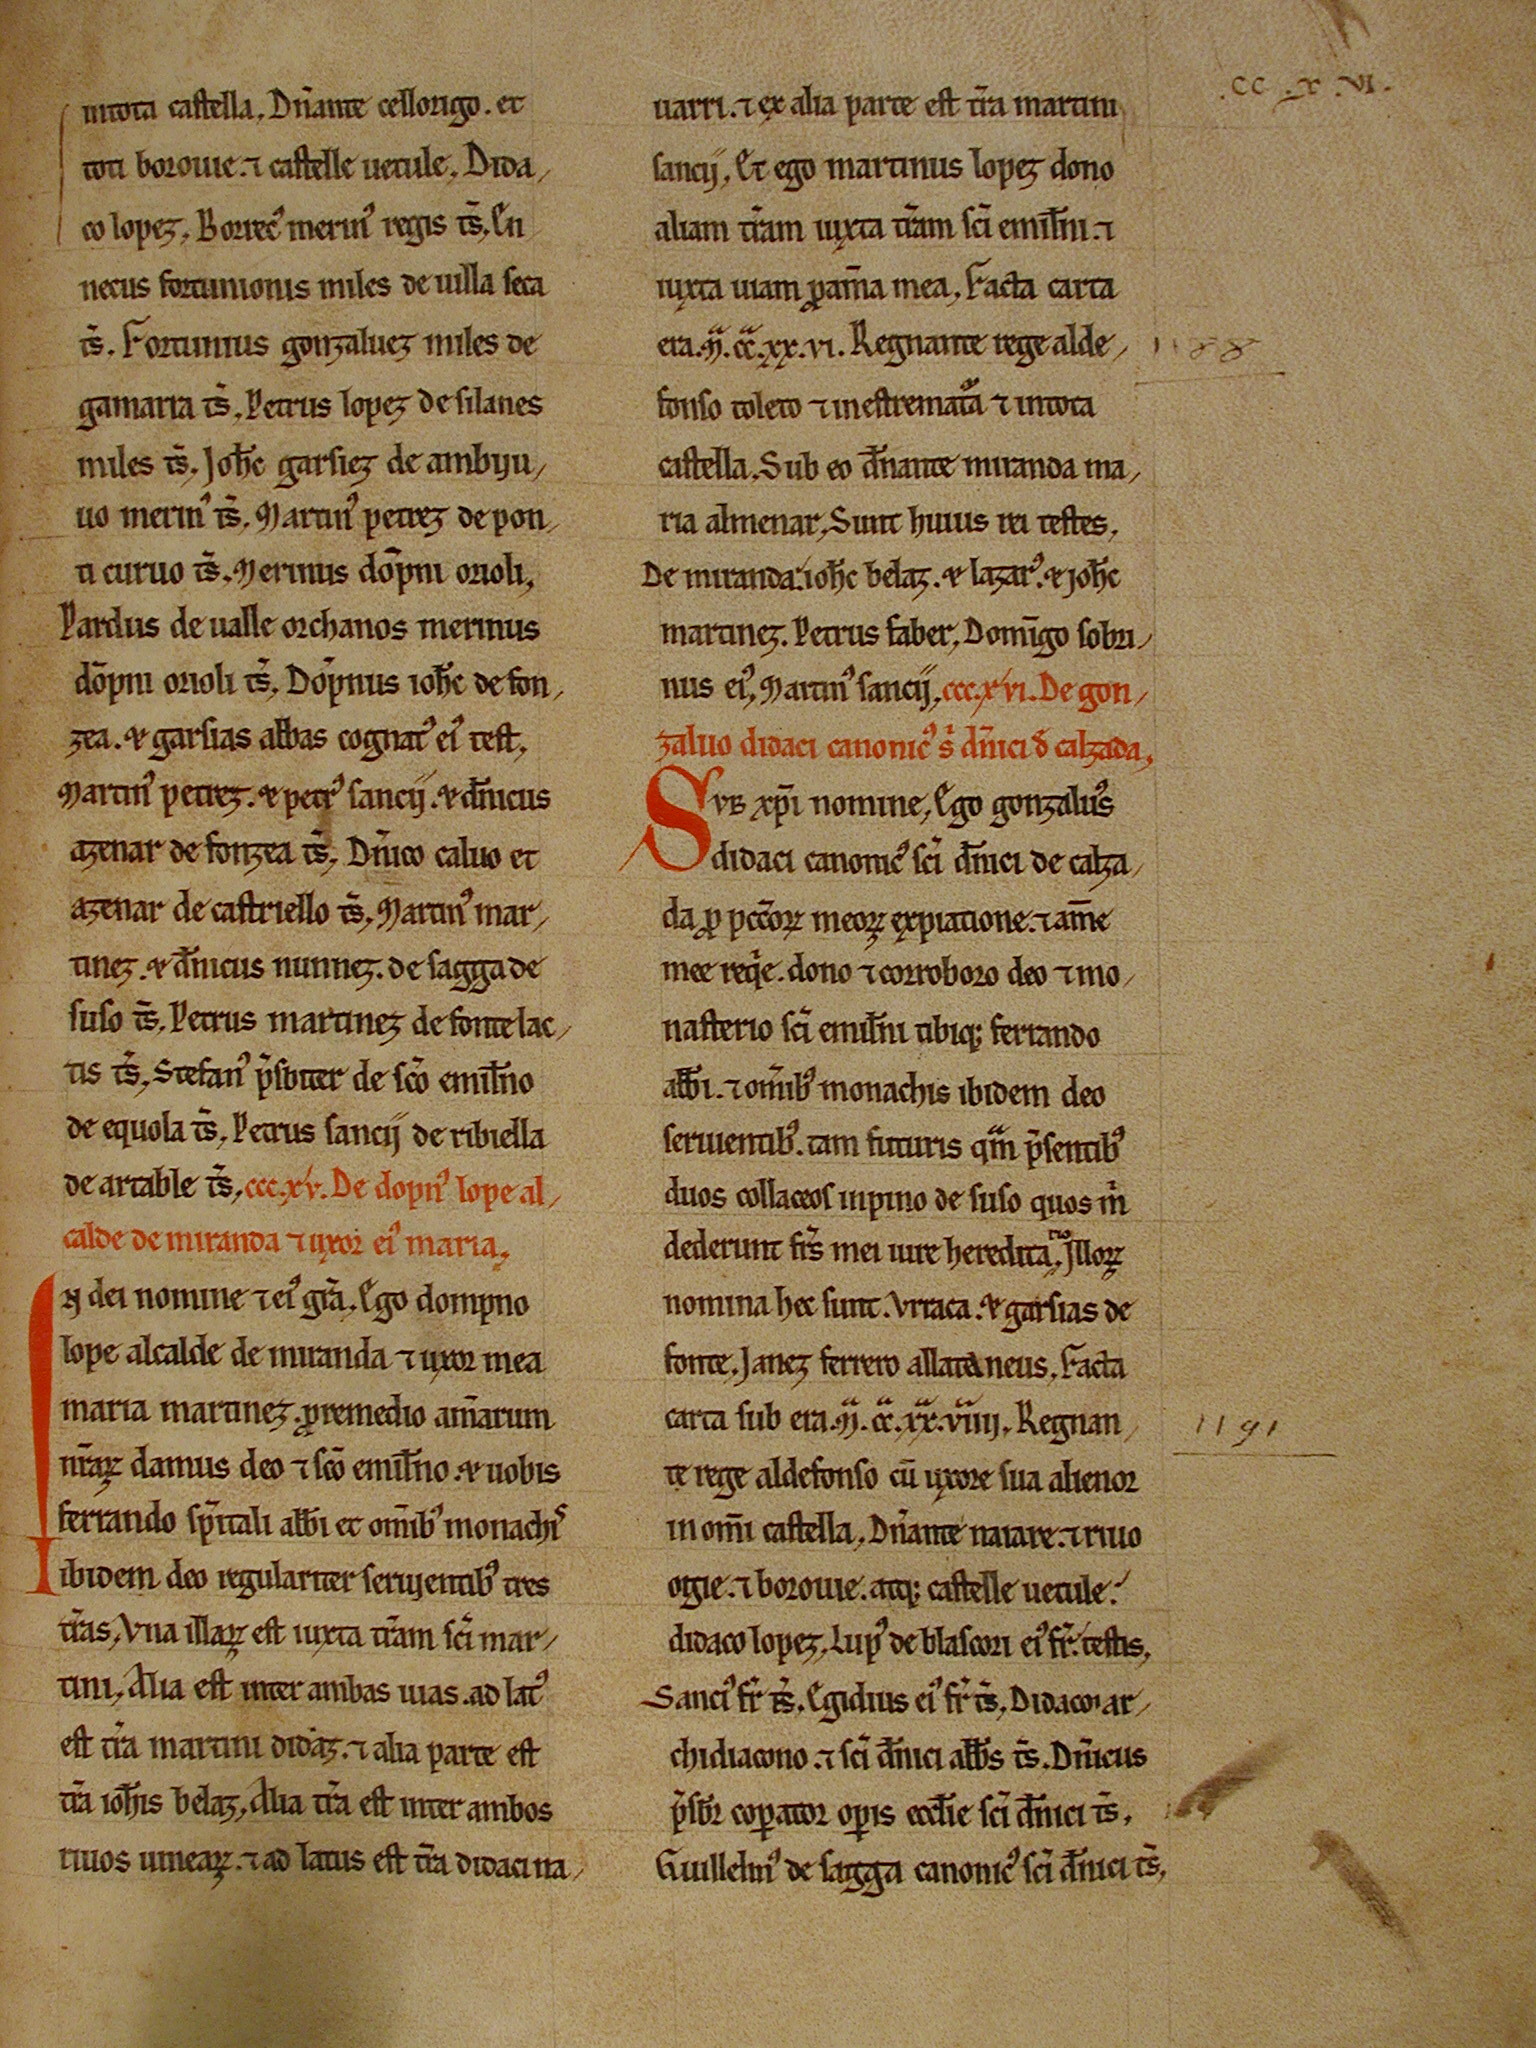 .CC.X.VI.
in tota castella. Dñante cellorigo. et
toti borouie. ⁊ castelle uetule. Dida/
co lopez. Borrec᷒ merin᷒ regis ts̃. En
necus fortunionis miles de uilla seca
ts̃. Fortunius gonzaluez miles de
gamarra ts̃. Petrus lopez de silanes
miles ts̃. Joħc garsiez de ambiju/
uo merin᷒ ts̃. Martin᷒ petrez de pon/
ti curuo ts̃. Merinus dõpni orioli.
Pardus de ualle orchanos merinus
dõpni orioli ts̃. Dõpnus ioħc de fon/
zea. & garsias abbas cognat᷒ ei᷒ test.
Martin᷒ petrez. & petr᷒ sancij. & dñicus
azenar de fonzea ts̃. Dñico caluo et
azenar de castriello ts̃. Martin᷒ mar/
tinez. & dñicus nunnez. de sagga de
suso ts̃. Petrus martinez de fonte lac/
tis ts̃. Stefan᷒ p̃sbiter de sc̃o emiłno
de equola ts̃. Petrus sancij de ribiella
de artable ts̃. ccc.xv. De dopn᷒ lope al/
calde de miranda ⁊ uxor ei᷒ maria.
IN dei nomine ⁊ ei᷒ gr̃a. Ego dompno
lope alcalde de miranda ⁊ uxor mea
maria martinez. ꝓ remedio am̃arum
nr̃aꝝ damus deo ⁊ sc̃o emiłno. & uobis
ferrando sp̃itali abb̃i et om̃ib᷒ monachis
ibidem deo regulariter seruientib᷒ tres
tr̃as. Vna illaꝝ est iuxta tr̃am sc̃i mar/
tini. Alia est inter ambas uias. ad lat᷒
est tr̃a martini didaz. ⁊ alia parte est
tr̃a ioħis belaz. Alia tr̃a est inter ambos
riuos uineaꝝ. ⁊ ad latus est tr̃a didaci na/
uarri. ⁊ ex alia parte est tr̃a martini
sancij. Et ego martinus lopez dono
aliam tr̃am iuxta tr̃am sc̃i emiłni. ⁊
iuxta uiam ꝓ am̃a mea. Facta carta
era. M̃. CC̃. xx. vi. Regnante rege alde/
1188
fonso toleto ⁊ in estremat̃a ⁊ in tota
castella. Sub eo dñante miranda ma/
ria almenar. Sunt huius rei testes.
De miranda: ioħc belaz. & lazar᷒. & joħc
martinez. Petrus faber. Domĩgo sobri/
nus ei᷒. Martin᷒ sancij. ccc.xvi. De gon/
zaluo didaci canonic᷒ s̃ dñici đ calzada.
SVB xp̃i nomine. Ego gonzalu᷒s
didaci canonic᷒ sc̃i dñici de calza/
da ꝓ pcc̃oꝝ meoꝝ expiatione. ⁊ am̃e
mee req̃e. dono ⁊ corroboro deo ⁊ mo/
nasterio sc̃i emiłni tibiqꝫ ferrando
abb̃i. ⁊ om̃ib᷒ monachis ibidem deo
seruientib᷒. tam futuris qm̃ p̃sentib᷒
duos collaceos in pino de suso quos m̃
dederunt frs̃ mei iure hereditario. Jlloꝝ
nomina hec sunt. Vrraca. & garsias de
fonte. Janez ferrero allataneus. Facta
carta sub era. M̃. CC̃. xx̃. viiij. Regnan/
1191
te rege aldefonso cũ uxore sua alienor
in om̃i castella. Dñante naiare. ⁊ riuo
ogie. ⁊ borouie. atqꝫ castelle uetule:
didaco lopez. Lup᷒ de blascori ei᷒ fr̃. testis.
Sanci᷒ fr̃ ts̃. Egidius ei᷒ fr̃ ts̃. Didaco ar/
chidiacono. ⁊ sc̃i dñici abb̃s ts̃. Dñicus
p̃sbr̃ coꝑator oꝑis eccł̃ie sc̃i dñici ts̃.
Guillelm᷒ de sagga canonic᷒ sc̃i dñici ts̃.